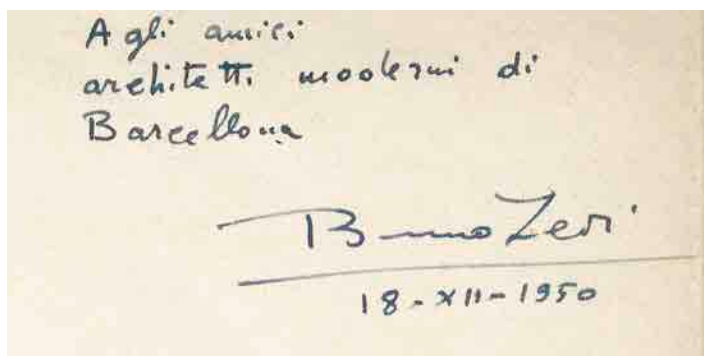 Agli amici
architetti moderni di
Barcellona
Bruno Zevi
18-XII-1950